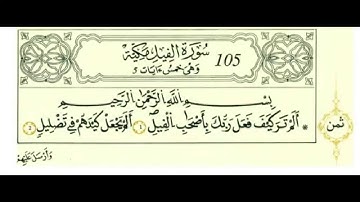 سُورَةُ الْفِيلِ مَكِّيَّةٌ 105
وَهْيَ خَمْسُ ءَايَاتٍ 5
بِسْمِ اللَّهِ الرَّحْمَٰنِ الرَّحِيمِ
أَلَمْ تَرَ كَيْفَ فَعَلَ رَبُّكَ بِأَصْحَابِ الْفِيلِ ١ أَلَمْ يَجْعَلْ كَيْدَهُمْ فِي تَضْلِيلٍ ٢ ثمن
وَأَرْسَلَ عَلَيْهِمْ